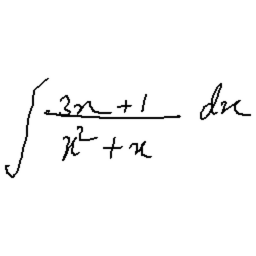 ∫ \frac{3x+1}{x^2+x} dx